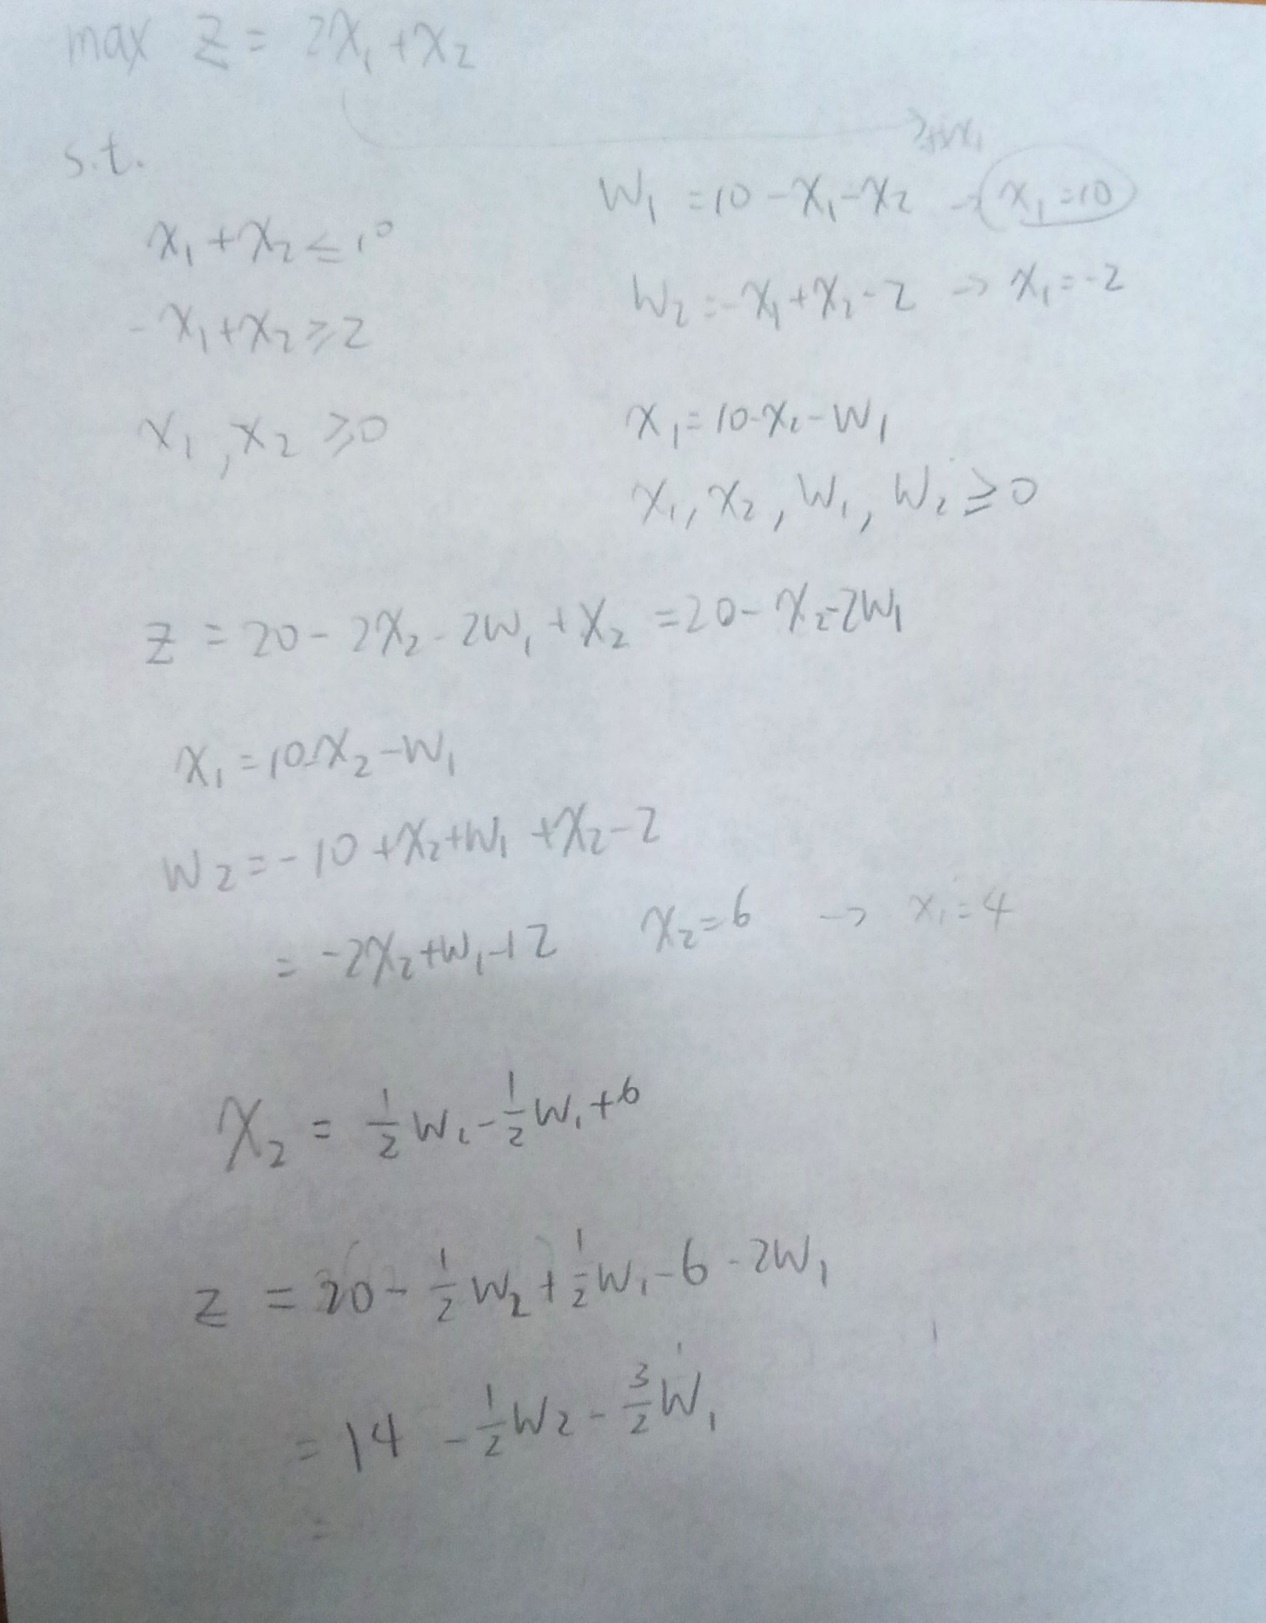 max z = 2x₁ + x₂
s.t.
w₁ = 10 - x₁ - x₂ → x₁ = 10
x₁ + x₂ ≤ 10
w₂ = -x₁ + x₂ - 2 → x₁ = -2
-x₁ + x₂ ≥ 2
x₁, x₂ ≥ 0
x₁ = 10 - x₂ - w₁
x₁, x₂, w₁, w₂ ≥ 0
z = 20 - 2x₂ - 2w₁ + x₂ = 20 - x₂ - 2w₁
x₁ = 10 - x₂ - w₁
w₂ = -10 + x₂ + w₁ + x₂ - 2
= -2x₂ + w₁ - 12 x₂ = 6 → x₁ = 4
x₂ = 1/2 w₂ - 1/2 w₁ + 6
z = 20 - 1/2 w₂ + 1/2 w₁ - 6 - 2w₁
= 14 - 1/2 w₂ - 3/2 w₁
=